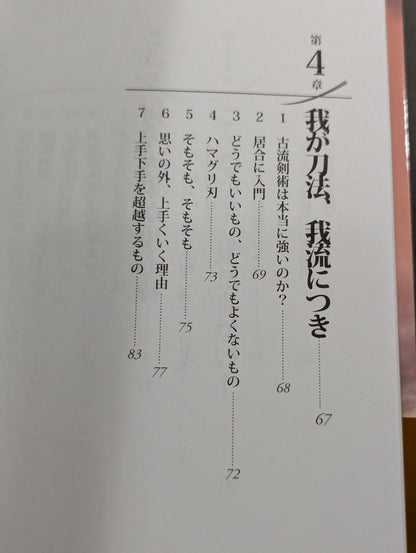 第4章
我が刀法、我流につき………67
1 古流剣術は本当に強いのか?………68
2 居合に入門………69
3 どうでもいいもの、どうでもよくないもの………72
4 ハマグリ刃………73
5 そもそも、そもそも………75
6 思いの外、上手くいく理由………77
7 上手下手を超越するもの………83